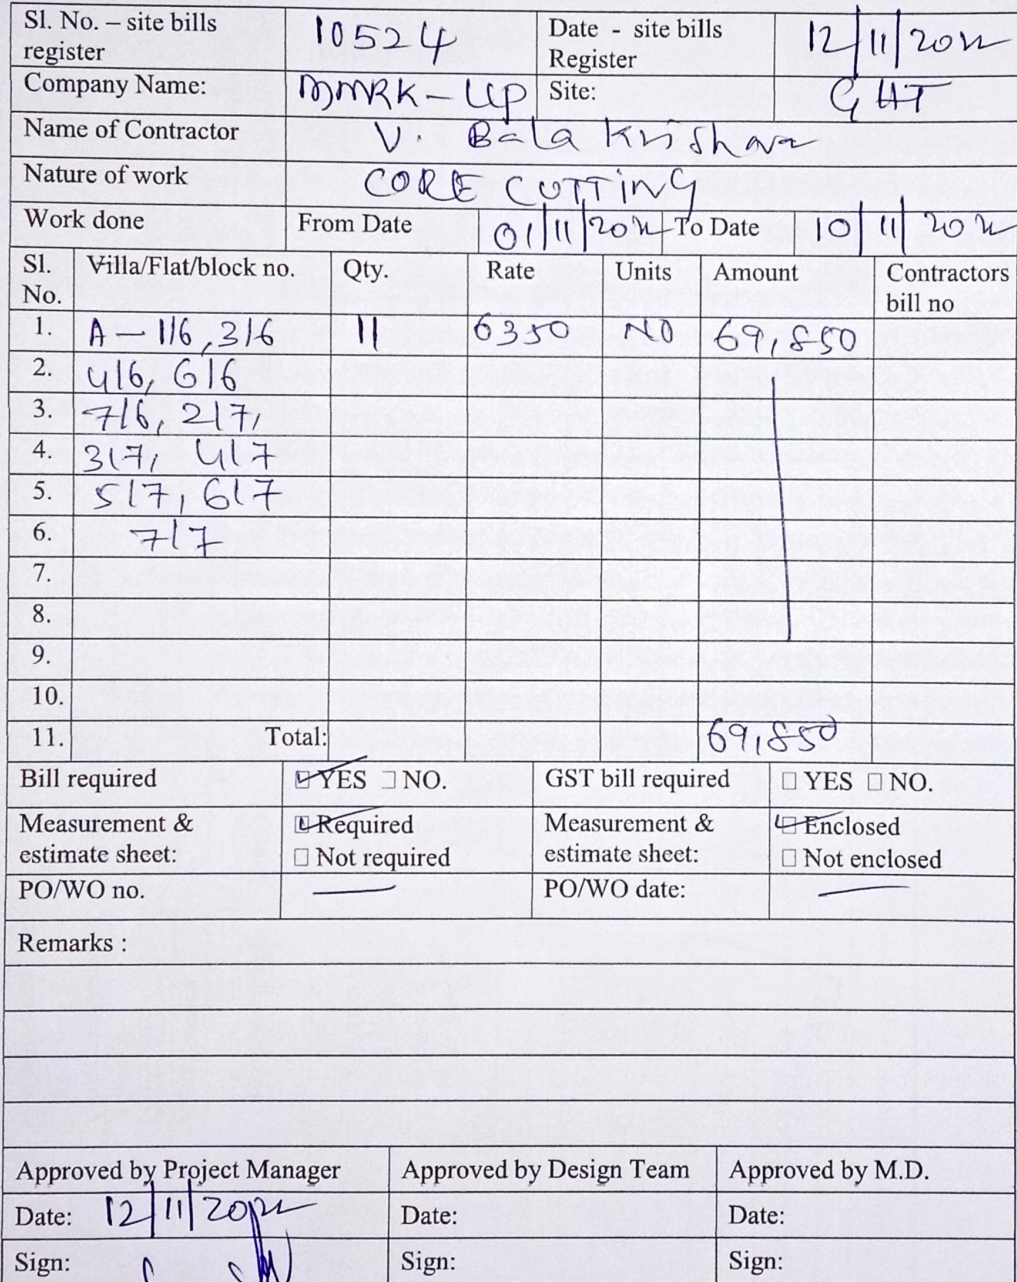 Sl. No. – site bills register 10524 Date - site bills Register 12/11/2022
Company Name: MMRK-LLP Site: GHT
Name of Contractor V. Bala Krishna
Nature of work CORE CUTTING
Work done From Date 01/11/2022 To Date 10/11/2022
Sl. No. Villa/Flat/block no. Qty. Rate Units Amount Contractors bill no
1. A - 116, 316 11 6350 NO 69,850
2. 416, 616
3. 716, 217,
4. 317, 417
5. 517, 617
6. 717
7.
8.
9.
10.
11. Total: 69,850
Bill required YES NO. GST bill required YES NO.
Measurement & estimate sheet: Required Not required Measurement & estimate sheet: Enclosed Not enclosed
PO/WO no. PO/WO date:
Remarks :
Approved by Project Manager Approved by Design Team Approved by M.D.
Date: 12/11/2022 Date: Date:
Sign: Sign: Sign: